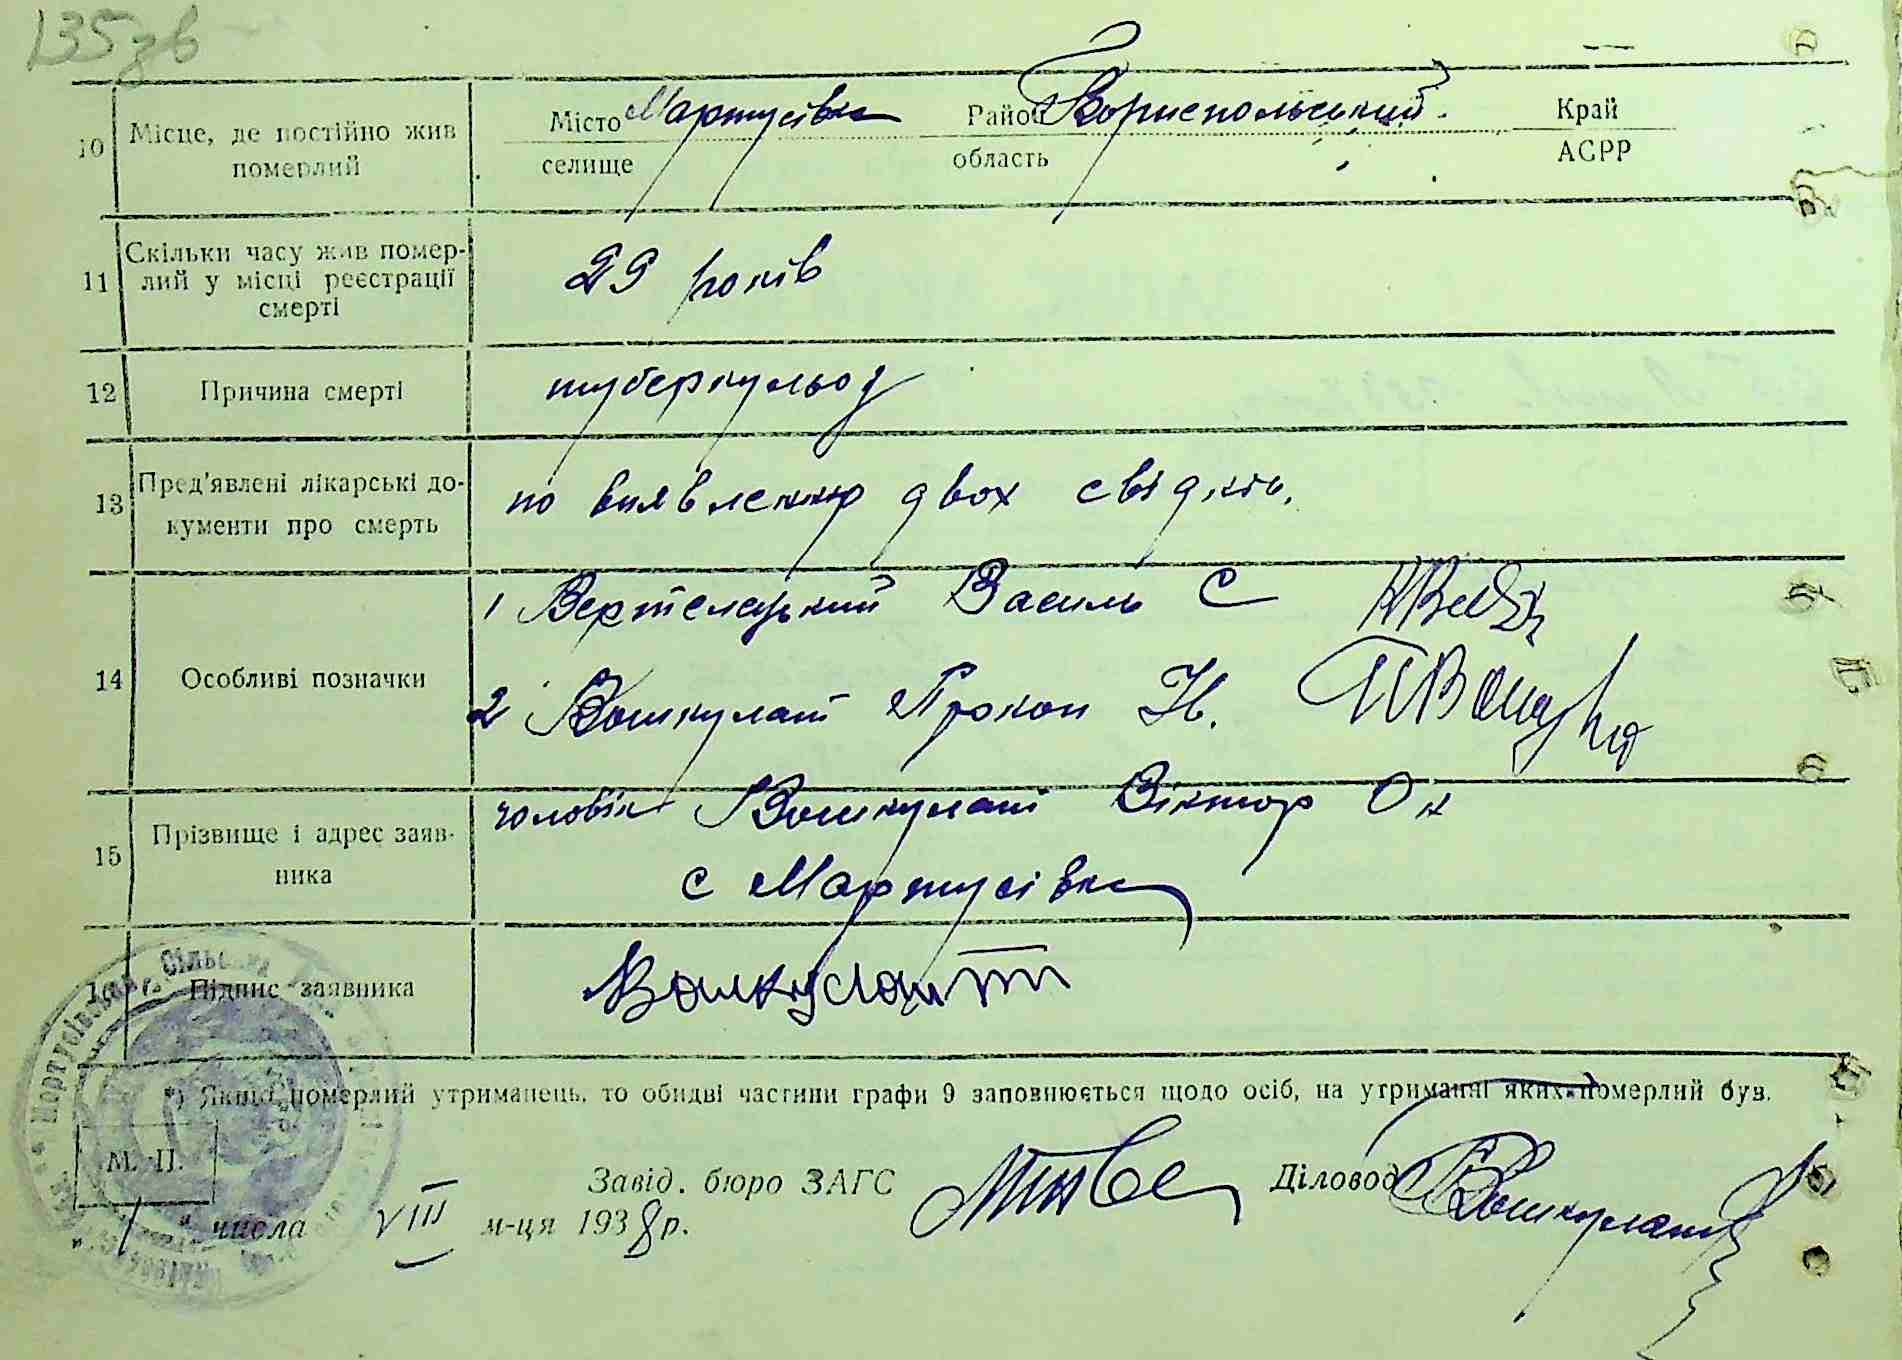 135 зв
10 Місце, де постійно жив померлий
Місто Мартусівка Район Бориспольський Край
селище область АСРР
11 Скільки часу жив померлий у місці реєстрації смерті
29 років
12 Причина смерті
туберкульоз
13 Пред'явлені лікарські документи про смерть
по виявленню двох свідків.
14 Особливі позначки
1 Вертелецький Василь С
2 Вошкулат Прокоп Ив.
15 Прізвище і адрес заявника
чоловік Вошкулат Віктор Ок
с Мартусівка
16 Підпис заявника
Вашкулатт
*) Якщо померлий утриманець, то обидві частини графи 9 заповнюється щодо осіб, на утриманні яких померлий був.
М. П.
Завід. бюро ЗАГС Діловод Вошкулат
"1" числа VIII м-ця 1938 р.